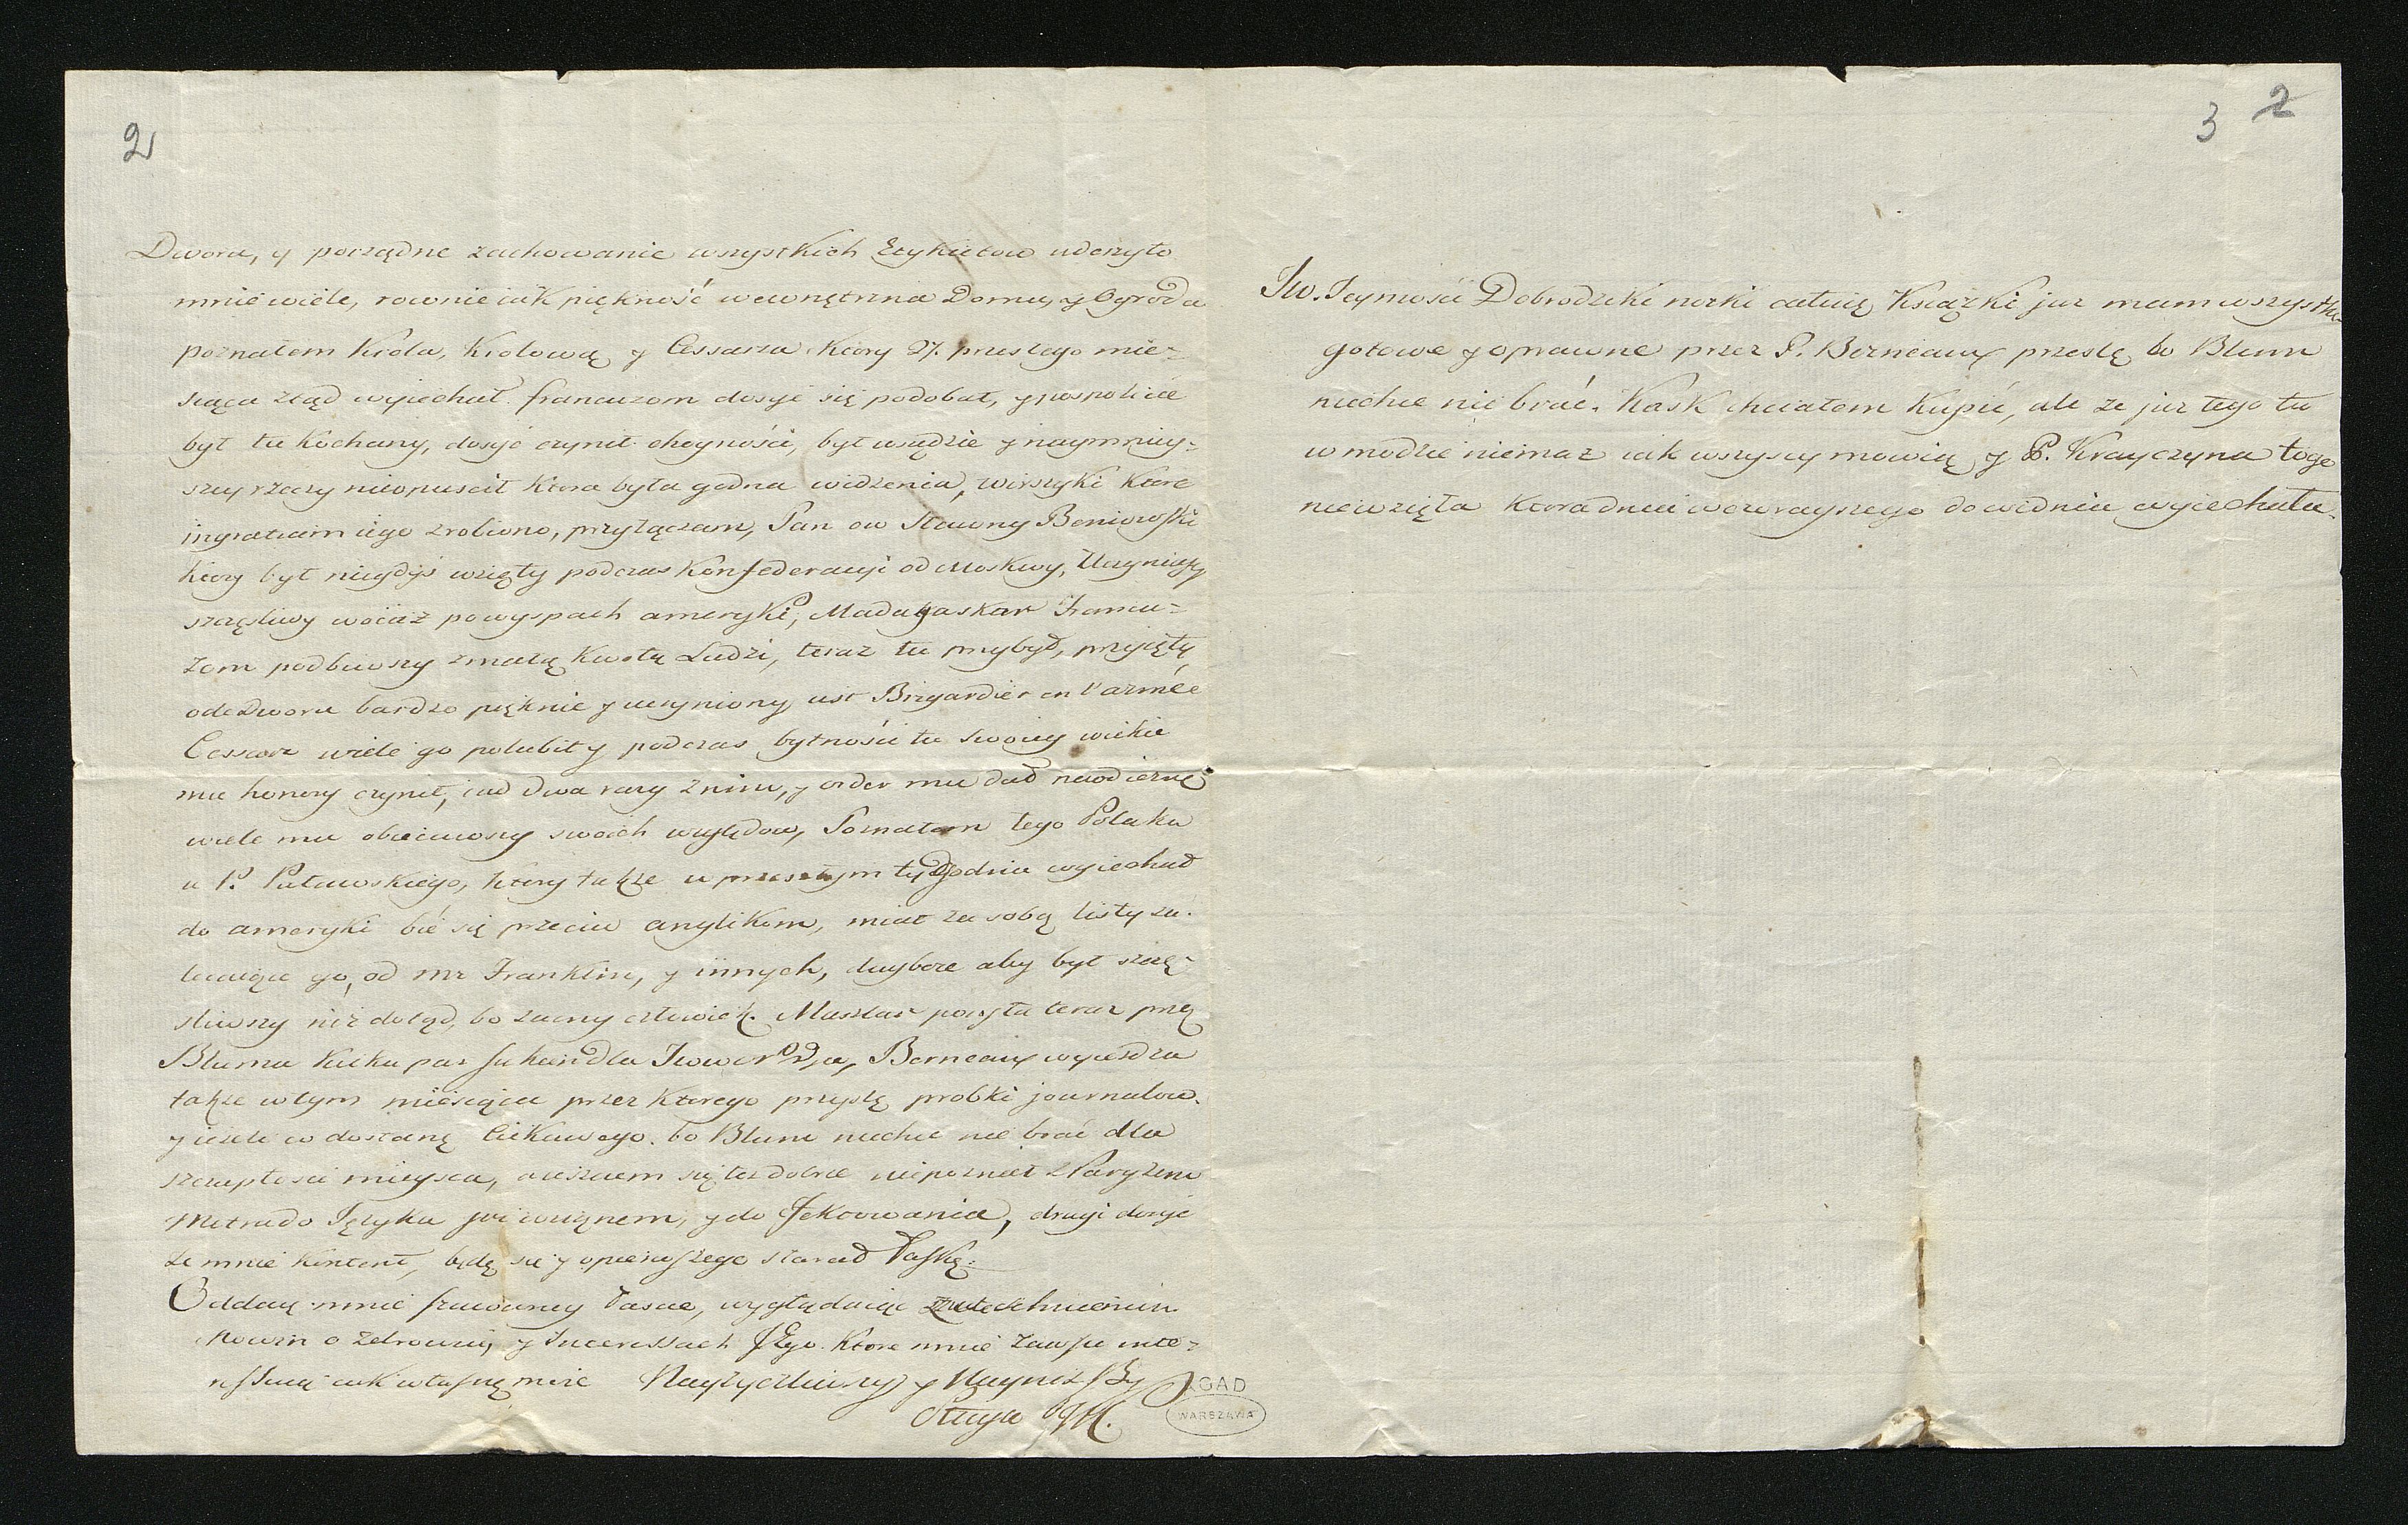 2
Dworu, y porządne zachowanie wszystkich Etykietow uderzyło
mnie wiele, rownie iak piękność wewnętrzna Domu, y Ogroda
poznałem Krola, Krolową y Cessarza ktory 27. przeszłego mie-
siąca ztąd wyiechał. francuzom dosyć się podobał, y pospolicie
był tu Kochany, dosyć czynił chęyności, był wszędzie y naymniey-
szey rzeczy nieopuscił ktora była godna widzenia, wierszyki ktore
in gratiam iego zrobiono, przyłączam, Pan ow Sławny Beniowski
ktory był niegdyś wzięty podczas Konfederacyi od Moskwy, Uczyniwszy
szczęsliwy woiaż po wyspach ameryki, Madagaskar Francu-
zom podbiwszy z małą kwotą Ludzi, teraz tu przybył, przyięty
ode Dworu bardzo pięknie y uczyniony iest Brigardier en l'armée
Cessarz wiele go polubił y podczas bytności tu swoiey wielkie
mu honory czynił, iad dwa razy z nim, y order mu dał
wiele mu obiecawszy swoich względow, Poznałem tego Polaka
u P. Puławskiego, ktory także w przeszłym tygodniu wyiechał
do ameryki bić się przeciw anglikom, miał za sobą listy za-
lecaiące go, od Mr Franklin, y innych, day boże aby był szczę-
sliwszy niż dotąd, bo zacny człowiek. Maszlar posyła teraz przez
Bluma kilka par sukien dla Berneaux wyiezdza
także w tym miesiącu przez ktorego przyslę probki journalow.
y ieżeli co dostanę Ciekawego. bo Blum niechce nic brać dla
szczupłosci mieysca, nieszaem się też dobrze niepoznał z Paryżem
Metra do Języka już wziąnem, y do fektowania, drugi dosyć
ze mnie kontent, będę się y o pierwszego starał łaskę.
Oddaię mnie szacowney łasce, wyglądaiąc z utęschnieniem
Nowin o zdrowiu, y Interessach JEgo. ktore mnie zawsze inte-
ressuią iak własnę moie Nayżyczliwszy y Nayniższy
Sługa JM.
AGAD
WARSZAWA
3 2
Jw. Jeymości Dobrodziki nożki całuię Ksiażki już mam wszystkie
gotowe y oprawne przez P. Berneaux przeslę, bo Blum
niechce nic brać. Kask chciałem kupić, ale że już tego tu
w modzie niemaż iak wszyscy mowią y P. Krayczyna tego
niewzięła ktora dnia wczorayszego do widnia wyiechała.